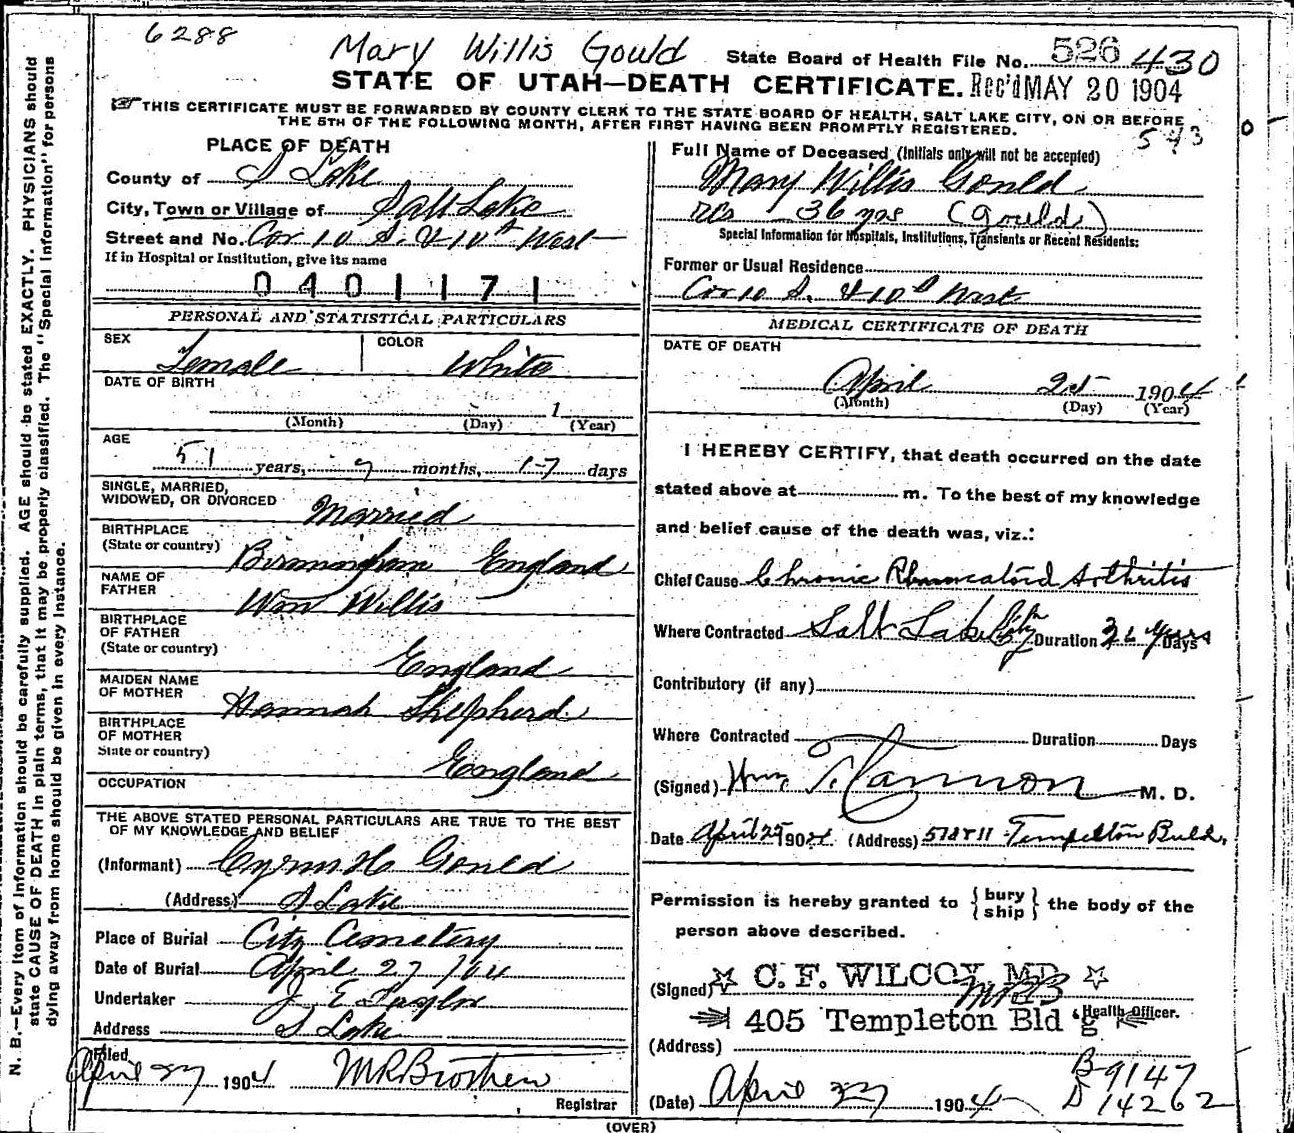 6288
Mary Willis Gould
State Board of Health File No. 526 430
STATE OF UTAH—DEATH CERTIFICATE. Rec'd MAY 20 1904
THIS CERTIFICATE MUST BE FORWARDED BY COUNTY CLERK TO THE STATE BOARD OF HEALTH, SALT LAKE CITY, ON OR BEFORE
THE 5TH OF THE FOLLOWING MONTH, AFTER FIRST HAVING BEEN PROMPTLY REGISTERED.
543
N. B.—Every item of information should be carefully supplied. AGE should be stated EXACTLY. PHYSICIANS should
state CAUSE OF DEATH in plain terms, that it may be properly classified. The "Special Information" for persons
dying away from home should be given in every instance.
PLACE OF DEATH
County of S Lake
City, Town or Village of Salt Lake
Street and No. Cor 10 S. & 10th West
If in Hospital or Institution, give its name
0401171
PERSONAL AND STATISTICAL PARTICULARS
SEX Female
COLOR White
DATE OF BIRTH
1
(Month) (Day) (Year)
AGE
51 years, 7 months, 17 days
SINGLE, MARRIED,
WIDOWED, OR DIVORCED Married
BIRTHPLACE
(State or country) Birmingham England
NAME OF
FATHER Wm Willis
BIRTHPLACE
OF FATHER
(State or country) England
MAIDEN NAME
OF MOTHER Hannah Shepherd
BIRTHPLACE
OF MOTHER
State or country) England
OCCUPATION
THE ABOVE STATED PERSONAL PARTICULARS ARE TRUE TO THE BEST
OF MY KNOWLEDGE AND BELIEF
(Informant) Cyrus H Gould
(Address) S Lake
Place of Burial City Cemetery
Date of Burial April 27/04
Undertaker J E Taylor
Address S Lake
Filed
April 27 1904 M R Brothen
Registrar
Full Name of Deceased (Initials only will not be accepted)
Mary Willis Gould
res 36 yrs (Gould)
Special Information for Hospitals, Institutions, Transients or Recent Residents:
Former or Usual Residence
Cor 10 S. & 10th West
MEDICAL CERTIFICATE OF DEATH
DATE OF DEATH
April 25 1904
(Month) (Day) (Year)
I HEREBY CERTIFY, that death occurred on the date
stated above at m. To the best of my knowledge
and belief cause of the death was, viz.:
Chief Cause Chronic Rheumatoid Arthritis
Where Contracted Salt Lake City Duration Years Days
Contributory (if any)
Where Contracted Duration Days
(Signed) Wm T. Cannon M. D.
Date April 25 1904 (Address) Templeton Build.
Permission is hereby granted to { bury
ship } the body of the
person above described.
(Signed) C. F. WILCOX, MD
MRB
405 Templeton Bld'g Health Officer.
(Address)
(Date) April 27 1904
B 9147
D 14262
(OVER)